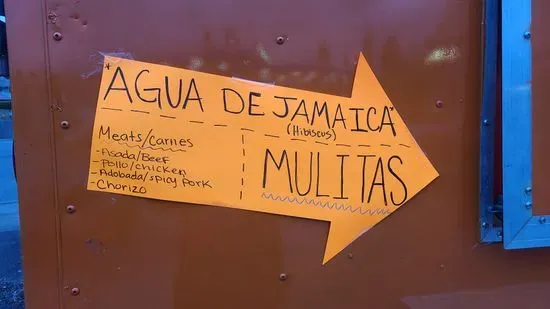 *AGUA DE JAMAICA*
(Hibiscus)
Meats/Carnes
- Asada/Beef
- Pollo/chicken
- Adobada/spicy pork
- Chorizo
MULITAS